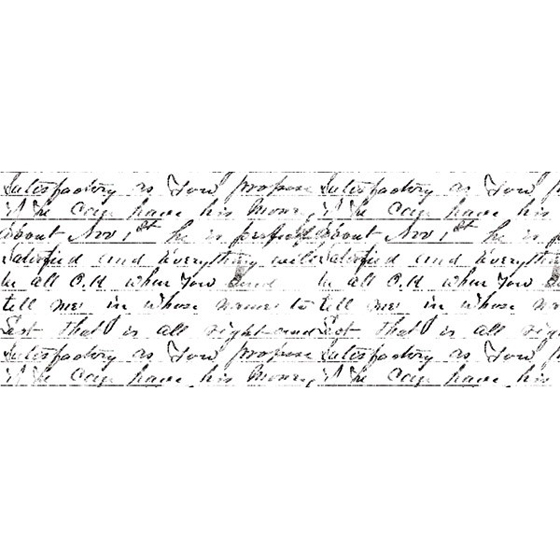 Satisfactory as You propose Satisfactory as You
if he can have his money, if he can have his
about Nov 1st he is perfectly about Nov 1st he is
satisfied and Everything will satisfied and Everything
be all O.K when You send be all O.K when You
tell me in whose name to tell me in whose
that is all right and that is all
Satisfactory as You propose Satisfactory as You
if he can have his money, if he can have his